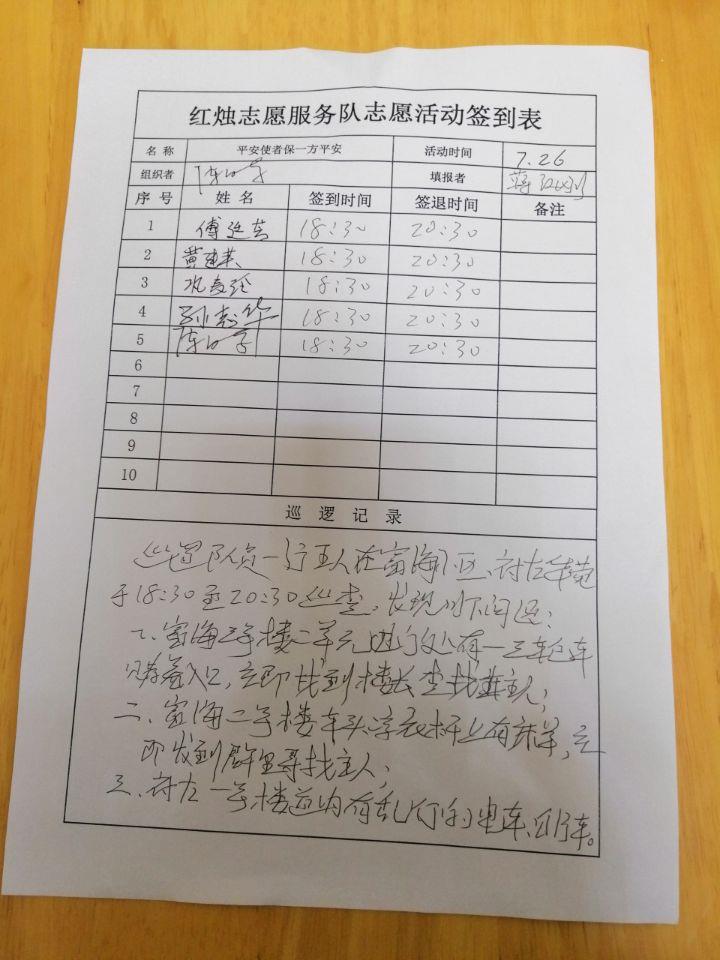 红烛志愿服务队志愿活动签到表
名 称 平安使者保一方平安 活动时间 7.26
组织者 填报者 蒋
序 号 姓 名 签到时间 签退时间 备注
1 傅延 18:30 20:30
2 黄建英 18:30 20:30
3 18:30 20:30
4 孙志华 18:30 20:30
5 18:30 20:30
6
7
8
9
10
巡 逻 记 录
巡逻队员一行五人在富海小区、
于18:30至20:30巡查，发现以下问题：
一、富海三号楼二单元进门处有一三轮车
堵着入口，立即找到楼长查找其主人；
二、富海二号楼车头凉衣杆上有，立
即发到群里寻找主人；
三、一号楼道内有乱停的电车、自行车。